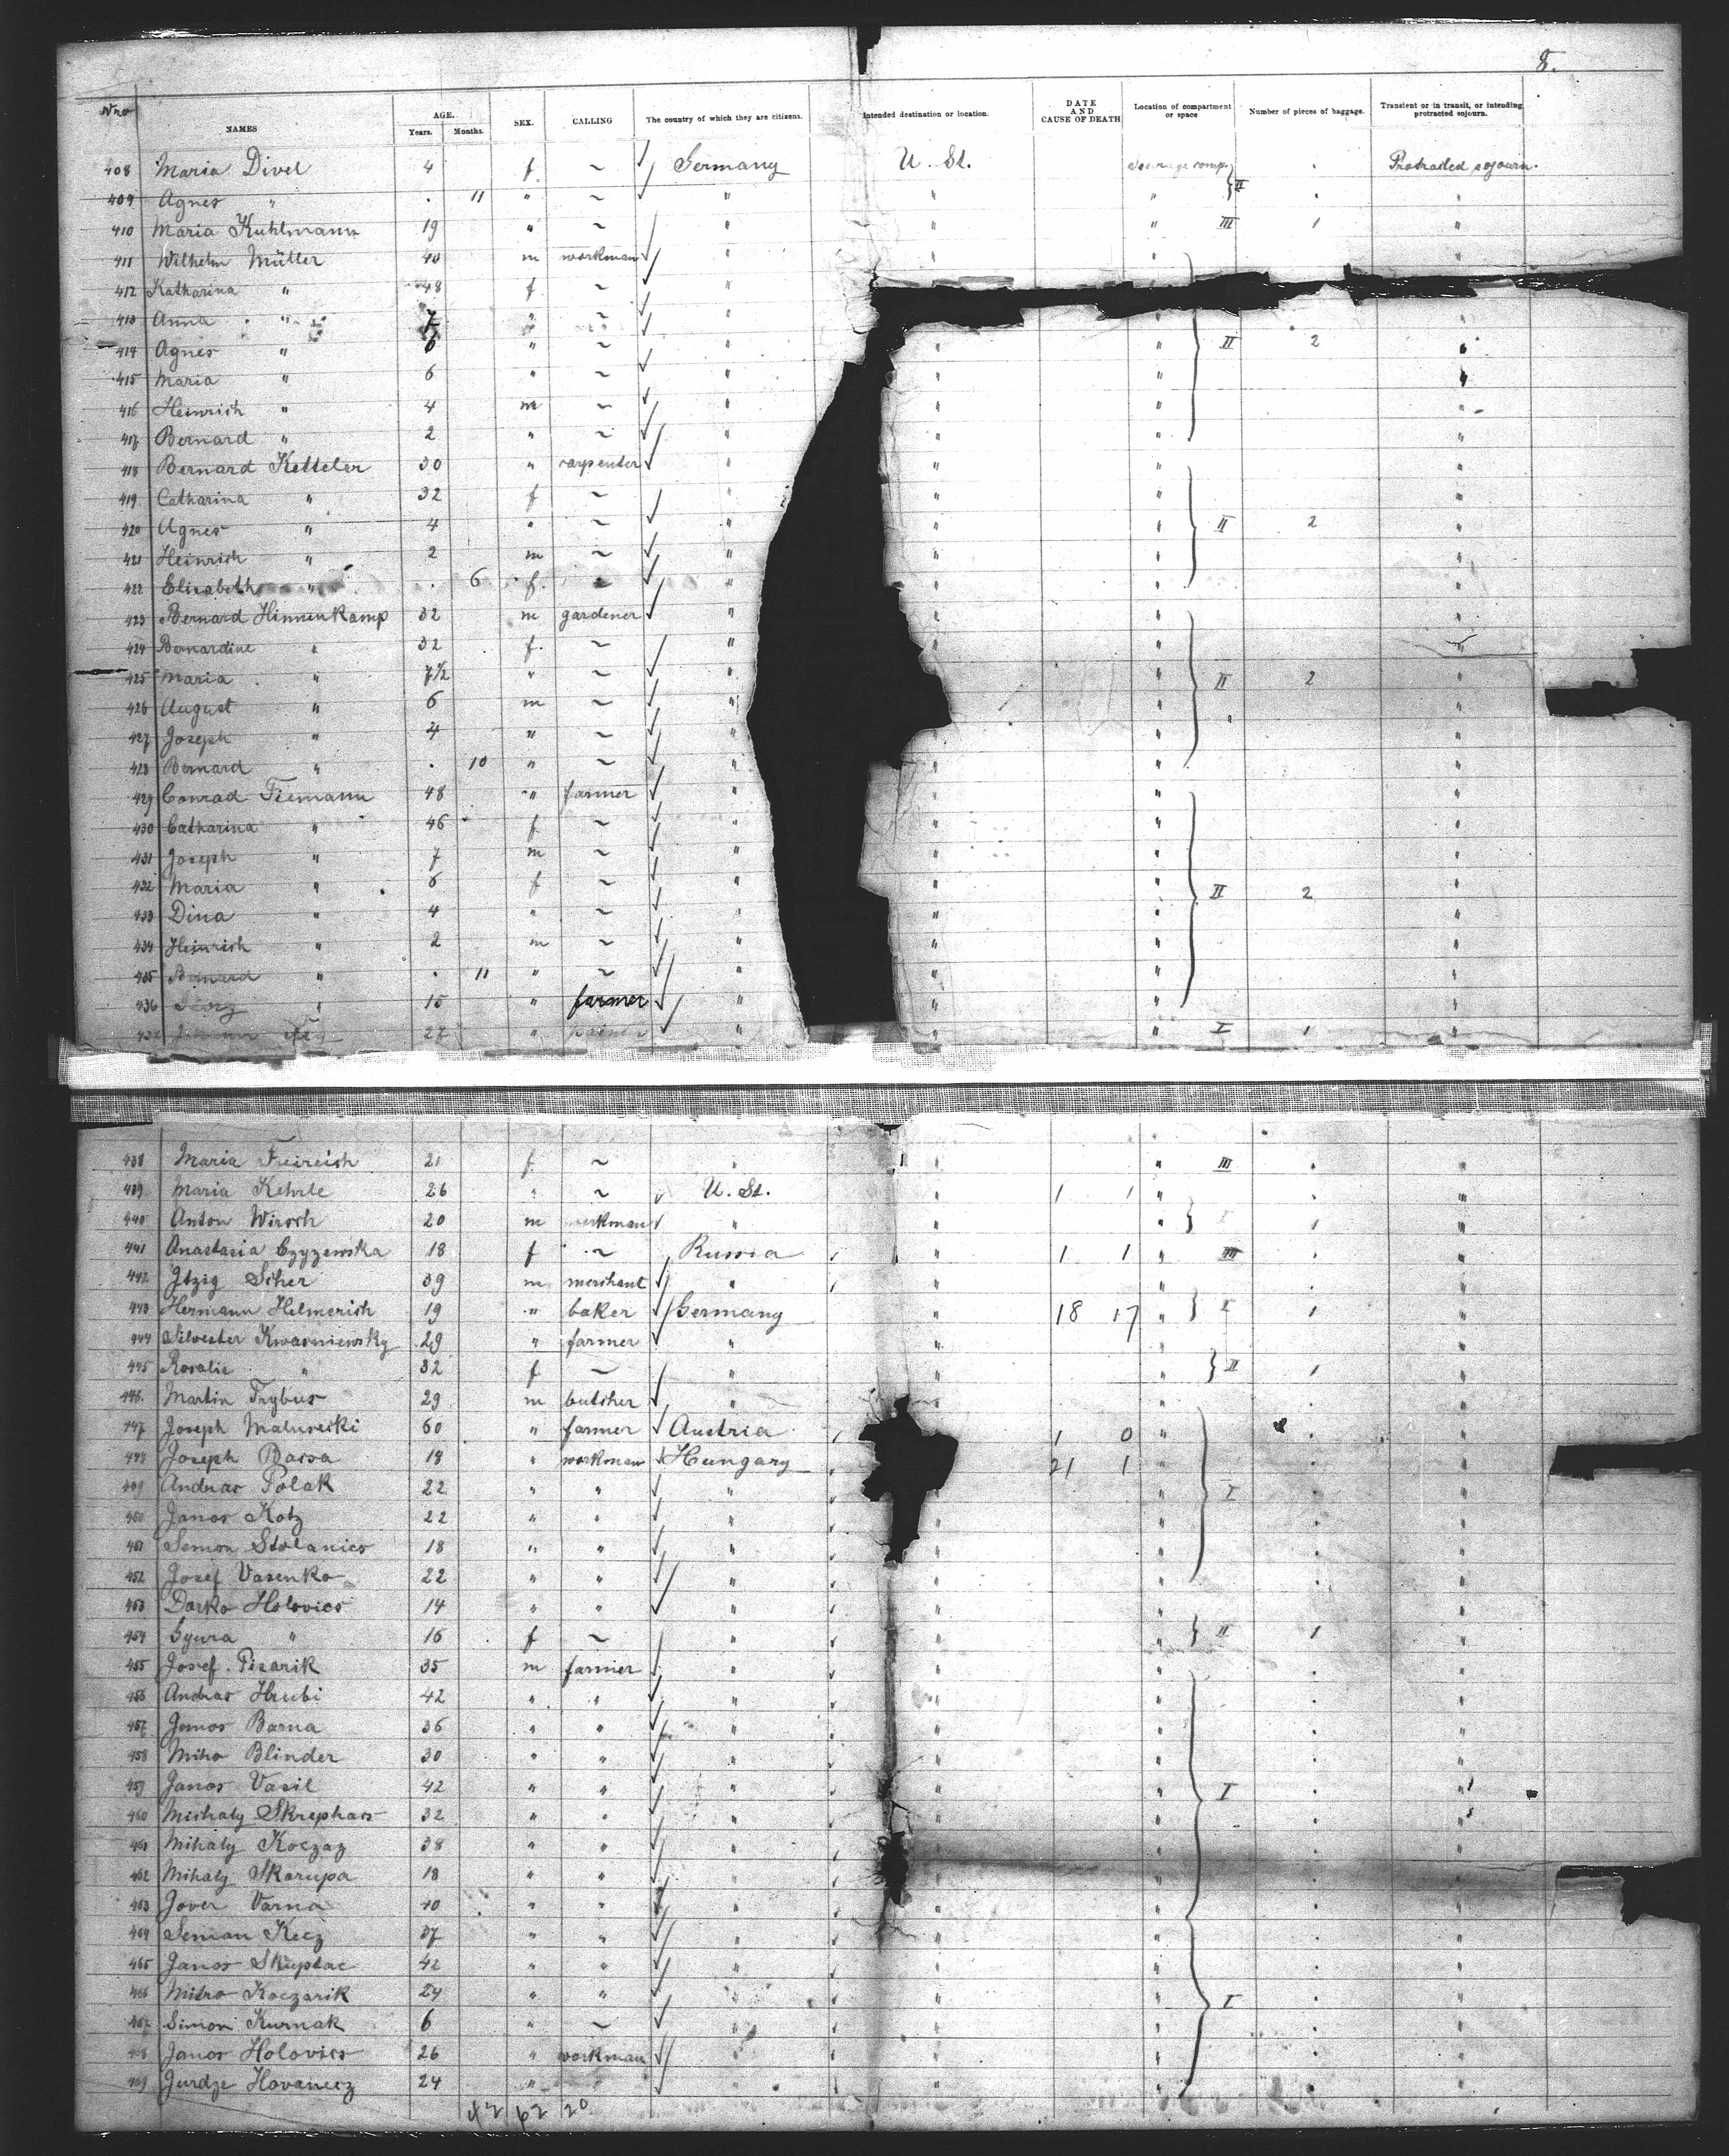 8.
Nro NAMES AGE. Years. Months. SEX. CALLING The country of which they are citizens. Intended destination or location. DATE AND CAUSE OF DEATH Location of compartment or space Number of pieces of baggage. Transient or in transit, or intending protracted sojourn.
408 Maria Divel 4 f ~ Germany U. St. Steerage comp. Protracted sojourn.
409 Agnes " . 11 " ~ " " " II . "
410 Maria Kuhlmann 19 " ~ " " " III 1 "
411 Wilhelm Müller 40 m workman " " " "
412 Katharina " 48 f ~ "
413 Anna " 7 " ~ " " "
414 Agnes " 6 " ~ " " " II 2 "
415 Maria " 6 " ~ " " " "
416 Heinrich " 4 m ~ " " " "
417 Bernard " 2 " ~ " " " "
418 Bernard Ketteler 30 " carpenter " " " "
419 Catharina " 32 f ~ " " " "
420 Agnes " 4 " ~ " " " II 2 "
421 Heinrich " 2 m ~ " " " "
422 Elisabeth " . 6 f. ~ " " " "
423 Bernard Hinnenkamp 32 m gardener " " " "
424 Bernardine " 32 f. ~ " " " "
425 Maria " 7½ " ~ " " " II 2 "
426 August " 6 m ~ " " " "
427 Joseph " 4 " ~ " " "
428 Bernard " . 10 " ~ " " " "
429 Conrad Tiemann 48 " farmer " " " "
430 Catharina " 46 f ~ " " " "
431 Joseph " 7 m ~ " " " "
432 Maria " 6 f ~ " " " II 2 "
433 Dina " 4 " ~ " " " "
434 Heinrich " 2 m ~ " " " "
435 Bernard " . 11 " ~ " " " "
436 " 15 " farmer " " " "
437 27 " " " " I 1 "
438 Maria Freireich 21 f ~ " " " III . "
439 Maria Kehrle 26 " ~ U. St. " 1 1 " "
440 Anton Wirsch 20 m workman " " " I 1 "
441 Anastasia Czyzewska 18 f ~ Russia " 1 1 " III . "
442 Itzig Scher 39 m merchant " " " . "
443 Hermann Helmerich 19 " baker Germany " 18 17 " I 1 "
444 Silvester Kwasniewsky 29 " farmer " " " "
445 Rosalie " 32 f ~ " " " II 1 "
446 Martin Trybus 29 m butcher " " . "
447 Joseph Malusecki 60 " farmer Austria 1 0 " . "
448 Joseph Bacsa 18 " workman Hungary 21 1 " . "
449 Andras Polak 22 " " " " " I . "
450 Janos Kotz 22 " " " " " . "
451 Semon Stolanics 18 " " " " " . "
452 Josef Vasenko 22 " " " " " . "
453 Darko Holovics 14 " " " " " "
454 Gyura " 16 f ~ " " " II 1 "
455 Josef Pisarik 35 m farmer " " " . "
456 Andras Hrubi 42 " " " " " . "
457 Janos Barna 36 " " " " " . "
458 Miho Blinder 30 " " " " " . "
459 Janos Vasil 42 " " " " " I . "
460 Michaly Skrephars 32 " " " " " . "
461 Mihaly Koczaz 38 " " " " " . "
462 Mihaly Skarupa 18 " " " " " . "
463 Jover Varna 40 " " " " " . "
464 Seman Kecz 37 " " " " " . "
465 Janos Skuptac 42 " " " " " . "
466 Mitro Koczarik 24 " " " " " I . "
467 Simon Kurnak 6 " ~ " " " . "
468 Janos Holovics 26 " workman " " " . "
469 Jurdze Hovanecz 24 " " " " . "
42 62 20